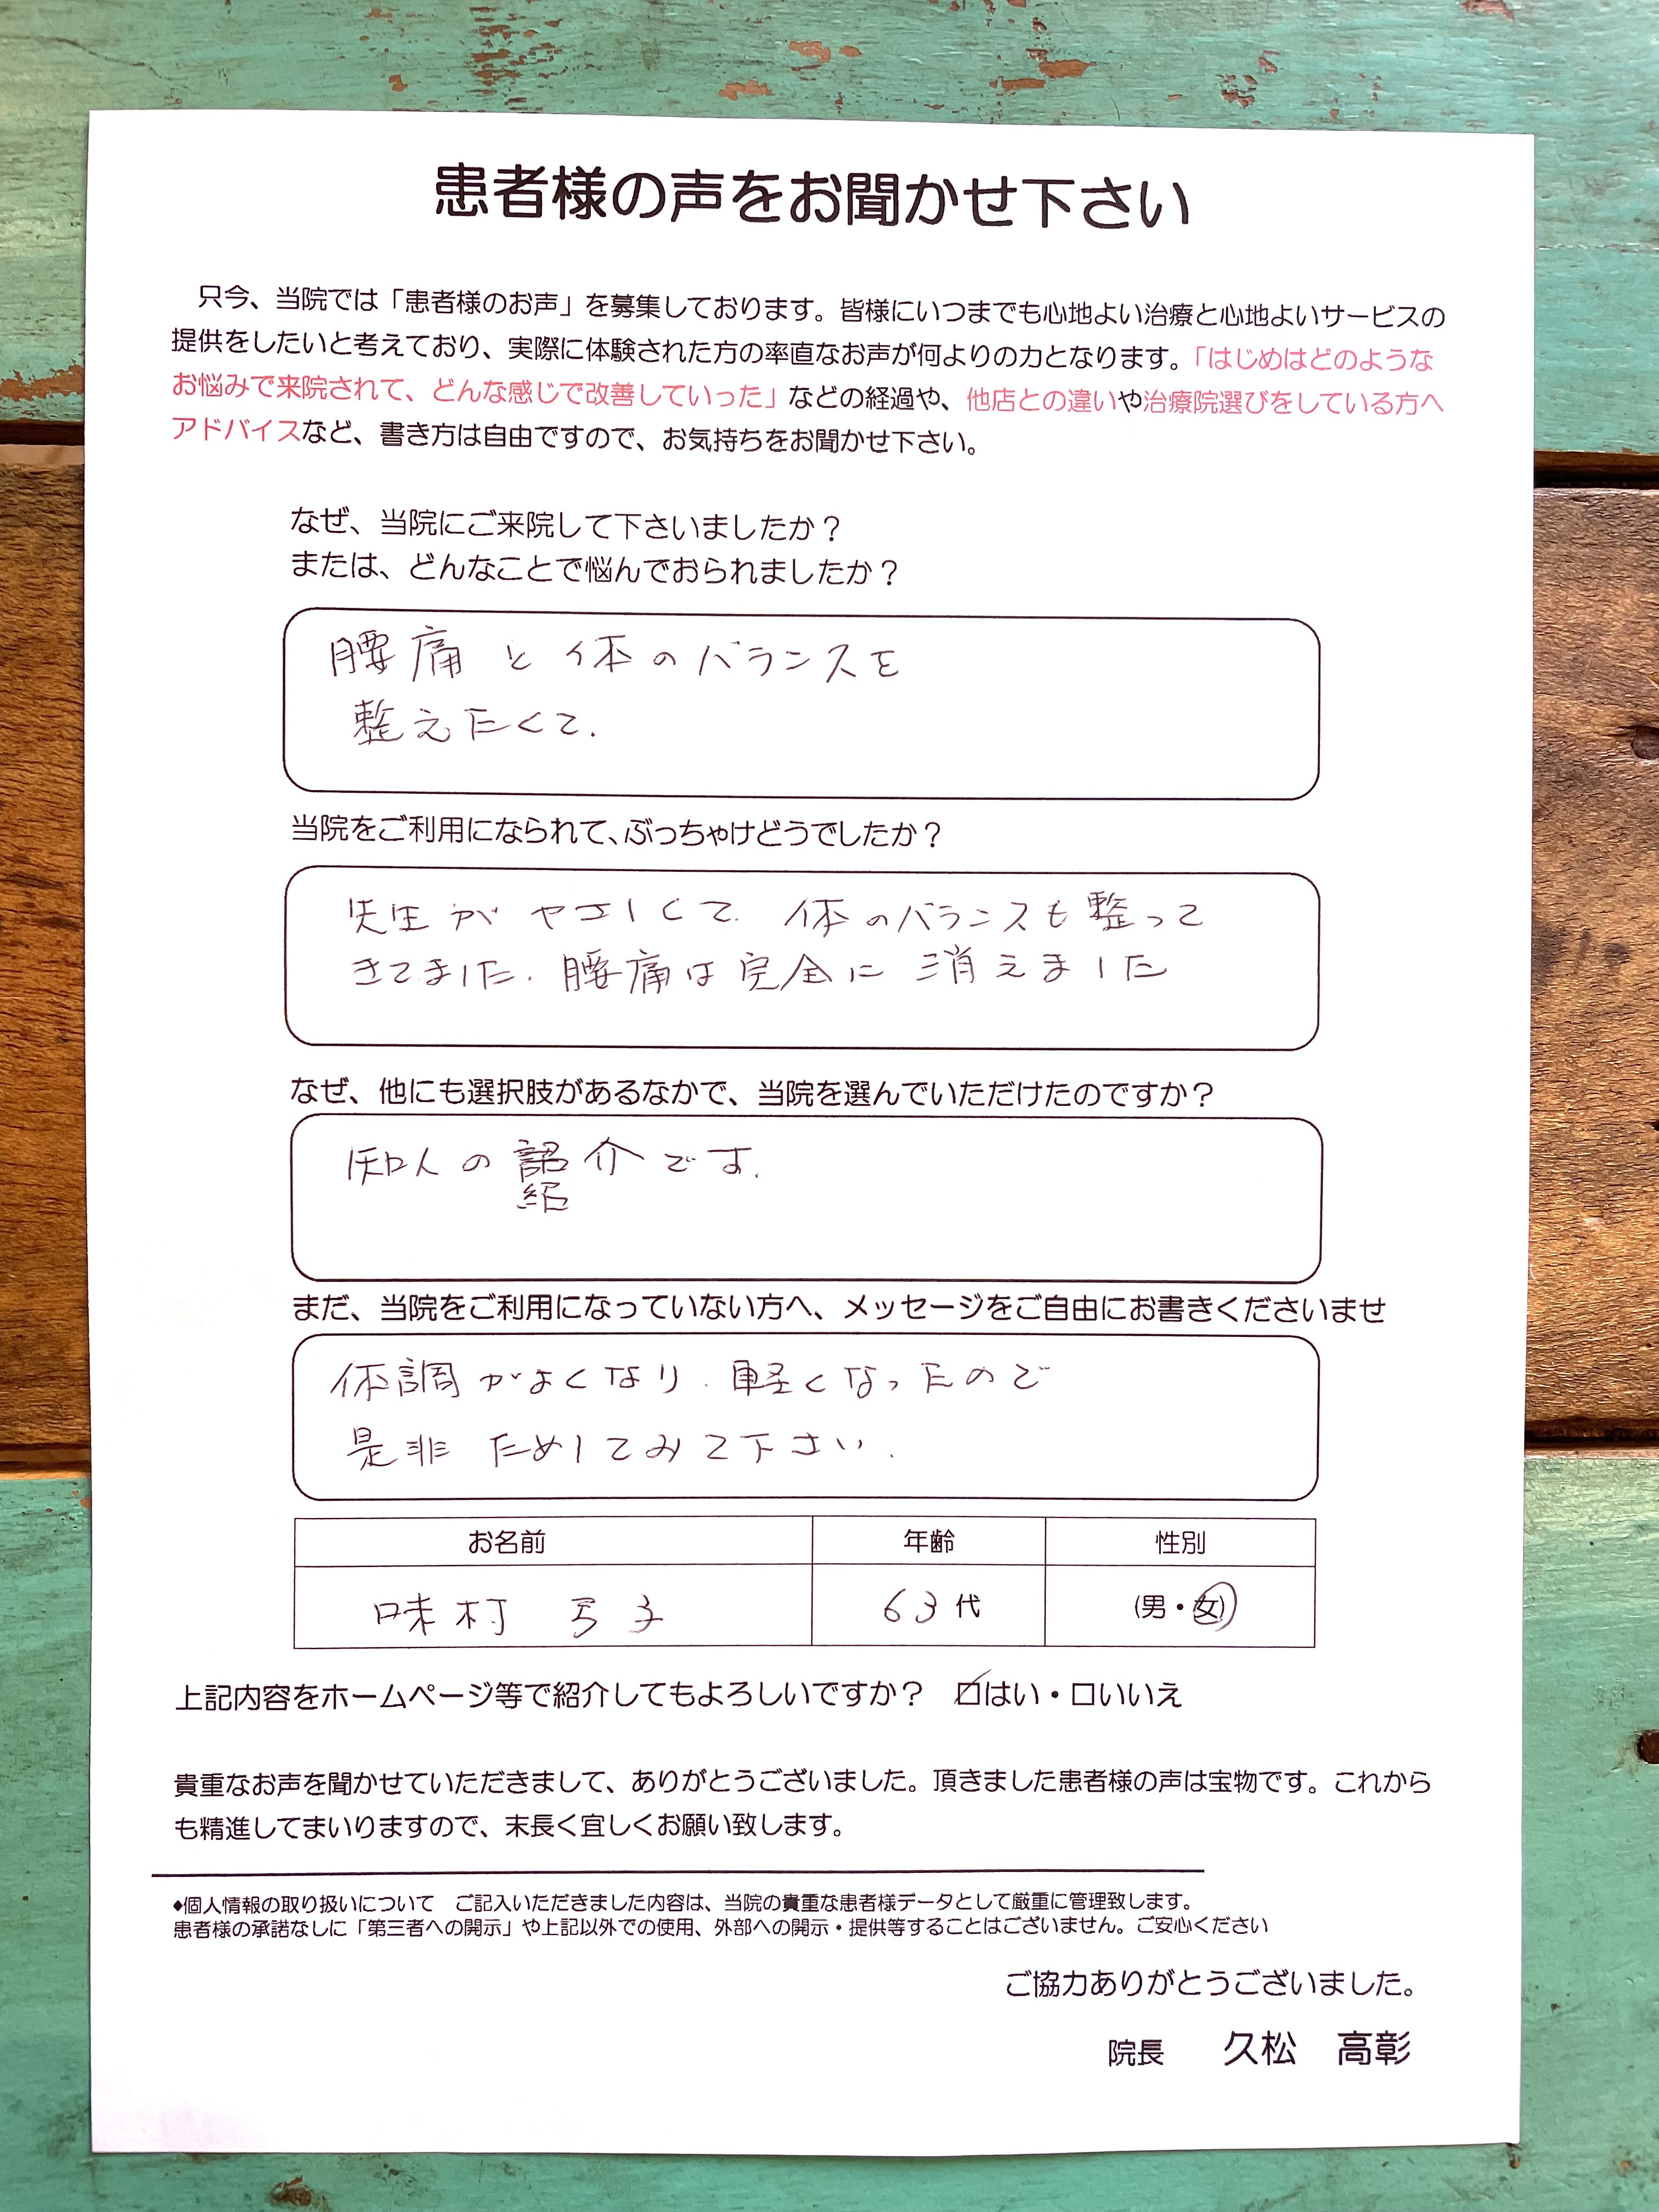 患者様の声をお聞かせ下さい
只今、当院では「患者様のお声」を募集しております。皆様にいつまでも心地よい治療と心地よいサービスの
提供をしたいと考えており、実際に体験された方の率直なお声が何よりの力となります。「はじめはどのような
お悩みで来院されて、どんな感じで改善していった」などの経過や、他店との違いや治療院選びをしている方へ
アドバイスなど、書き方は自由ですので、お気持ちをお聞かせ下さい。
なぜ、当院にご来院して下さいましたか？
または、どんなことで悩んでおられましたか？
腰痛と体のバランスを
整えたくて.
当院をご利用になられて、ぶっちゃけどうでしたか？
先生がやさしくて.体のバランスも整って
きてました.腰痛は完全に消えました
なぜ、他にも選択肢があるなかで、当院を選んでいただけたのですか？
知人の詔介です.
紹
まだ、当院をご利用になっていない方へ、メッセージをご自由にお書きくださいませ
体調がよくなり.軽くなったので
是非ためしてみて下さい.
お名前 年齢 性別
味村 弓子 63代 (男・女)
上記内容をホームページ等で紹介してもよろしいですか？ ☑はい・□いいえ
貴重なお声を聞かせていただきまして、ありがとうございました。頂きました患者様の声は宝物です。これから
も精進してまいりますので、末長く宜しくお願い致します。
◆個人情報の取り扱いについて ご記入いただきました内容は、当院の貴重な患者様データとして厳重に管理致します。
患者様の承諾なしに「第三者への開示」や上記以外での使用、外部への開示・提供等することはございません。ご安心ください
ご協力ありがとうございました。
院長 久松 高彰